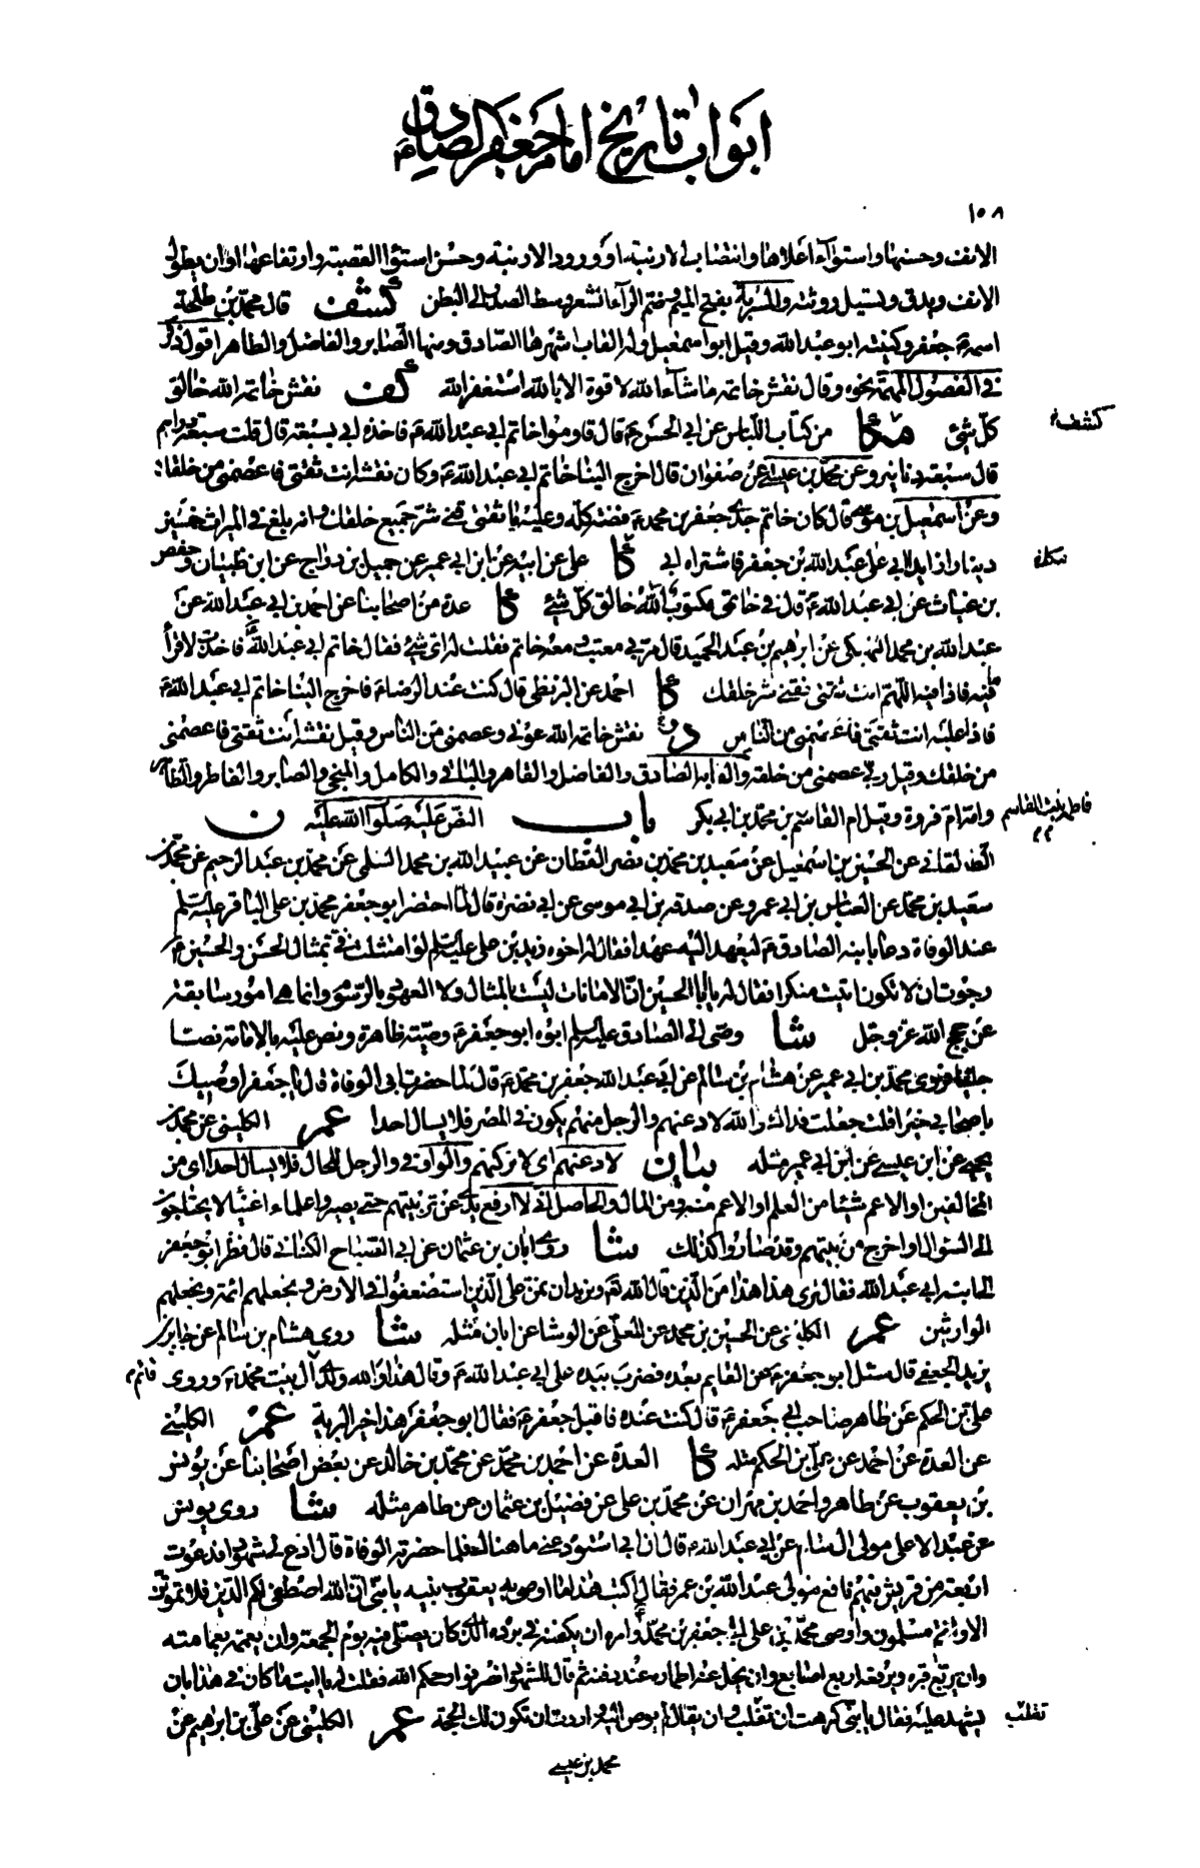 ابواب تاريخ امام جعفر الصادق ع
١٥٨
الانف وحسنها واستواء اعلاها وانتصاب الارنبة او ورود الارنبة وحسن استواء القصبة وارتفاعها او ان يطول
الانف ويدق ويسيل روثته والمسربة بفتح الميم وضم الراء الشعر وسط الصدر الى البطن كشف قال محمد بن طلحة
اسمه جعفر وكنيته ابو عبد الله وقيل ابو اسمعيل وله القاب اشهرها الصادق ومنها الصابر والفاضل والطاهر اقول ذكر
في الفصول المهمة نحوه وقال نقش خاتمه ما شاء الله لا قوة الا بالله استغفر الله كف نقش خاتمه الله خالق
كل شئ مكا من كتاب اللباس عن ابي الحسن ع قال قاوموا خاتم ابي عبد الله ع فاخذه ابي بسبعة قال قلت سبعة دراهم
قال سبعة دنانير وعن محمد بن عيسى عن صفوان قال اخرج الينا خاتم ابي عبد الله ع وكان نقشه انت ثقتي فاعصمني من خلقك
وعن اسمعيل بن موسى قال كان خاتم جدي جعفر بن محمد ع فضة كله وعليه يا ثقتي قني شر جميع خلقك وانه بلغ في الميراث خمسين
دينارا زايد ابي على عبد الله بن جعفر فاشتراه ابي كا علي عن ابيه عن ابن ابي عمير عن جميل بن دراج عن ابن ظبيان وحفص
بن غياث عن ابي عبد الله ع قال في خاتمي مكتوب الله خالق كل شئ كا عدة من اصحابنا عن احمد بن ابي عبد الله عن
عبد الله بن محمد النهيكي عن ابرهيم بن عبد الحميد قال مر بي معتب ومعه خاتم فقلت له اي شئ فقال خاتم ابي عبد الله ع فاخذت لاقرأ
ما فيه فاذا فيه اللهم انت ثقتي فقني شر خلقك كا احمد عن البزنطي قال كنت عند الرضا ع فاخرج الينا خاتم ابي عبد الله ع
فاذا عليه انت ثقتي فاعصمني من الناس نقش خاتمه الله عوني وعصمتي من الناس وقيل نقشه انت ثقتي فاعصمني
من خلقك وقيل ربي عصمني من خلقه والقابه الصادق والفاضل والقاهر والباقي والكامل والمنجي والصابر والفاطر والطاهر
وامه ام فروة وقيل ام القاسم بن محمد بن ابي بكر باب النص عليه صلوات الله عليه ن
الطالقاني عن الحسين بن اسمعيل عن سعيد بن محمد بن نصر القطان عن عبيد الله بن محمد السلمي عن محمد بن عبد الرحيم عن محمد بن
سعيد بن محمد عن العباس بن ابي عمرو عن صدقة بن ابي موسى عن ابي نضرة قال لما احتضر ابو جعفر محمد بن علي الباقر عليه السلم
عند الوفاة دعا بابنه الصادق ع ليعهد اليه عهدا فقال له اخوه زيد بن علي عليه السلم لو امتثلت في تمثال الحسن والحسين ع
رجوت ان لا تكون اتيت منكرا فقال له يا ابا الحسين ان الامانات ليست بالمثال ولا العهود بالرسوم وانما هي امور سابقة
عن حجج الله عز وجل شا وصى الى الصادق عليه السلم ابوه ابو جعفر ع وصية ظاهرة ونص عليه بالامامة نصا
جليا فروى محمد بن ابي عمير عن هشام بن سالم عن ابي عبد الله جعفر بن محمد ع قال لما حضرت ابي الوفاة قال يا جعفر اوصيك
باصحابي خيرا قلت جعلت فداك والله لادعنهم والرجل منهم يكون في المصر فلا يسال احدا عمر الكليني عن محمد بن
يحيى عن ابن عيسى عن ابن ابي عمير مثله بيان لادعنهم اي لاتركنهم والواو في والرجل للحال فلا يسال احدا اي من
المخالفين او الاعم شيئا من العلم او الاعم منه ومن المال والحاصل اني لا ارفع يدي عن تربيتهم حتى يصيروا علماء اغنياء لا يحتاجون
الى السئوال او اخرج من بينهم وقد صاروا كذلك شا روى ابان بن عثمان عن ابي الصباح الكناني قال نظر ابو جعفر
الى ابنه ابي عبد الله فقال ترى هذا هذا من الذين قال الله تعالى ونريد ان نمن على الذين استضعفوا في الارض ونجعلهم ائمة ونجعلهم
الوارثين عمر الكليني عن الحسين بن محمد عن المعلى عن الوشا عن ابان مثله شا روى هشام بن سالم عن جابر بن
يزيد الجعفي قال سئل ابو جعفر ع عن القايم بعده فضرب بيده على ابي عبد الله ع وقال هذا والله ولدي ال بيت محمد ع وروى
علي بن الحكم عن طاهر صاحب ابي جعفر ع قال كنت عنده فاقبل جعفر ع فقال ابو جعفر هذا خير البرية عمر الكليني
عن العدة عن احمد عن علي بن الحكم مثله كا العدة عن احمد بن محمد عن محمد بن خالد عن بعض اصحابنا عن يونس
بن يعقوب عن طاهر واحمد بن مهران عن محمد بن علي عن فضيل بن عثمان عن طاهر مثله شا روى يونس
عن عبد الاعلى مولى ال سام عن ابي عبد الله ع قال ان ابي استودعني ما هناك فلما حضرته الوفاة قال ادع لي شهودا فدعوت
اربعة من قريش فيهم نافع مولى عبد الله بن عمر فقال اكتب هذا ما اوصى به يعقوب بنيه يا بني ان الله اصطفى لكم الدين فلا تموتن
الا وانتم مسلمون واوصى محمد بن علي الى جعفر بن محمد وامره ان يكفنه في برده الذي كان يصلي فيه يوم الجمعة وان يعممه بعمامته
وان يربع قبره ويرفعه اربع اصابع وان يحل عنه اطماره عند دفنه ثم قال للشهود انصرفوا رحمكم الله فقلت له يا ابت ما كان في هذا بان
يشهد عليه فقال يا بني كرهت ان تغلب وان يقال لم يوص اليه واردت ان تكون لك الحجة عمر الكليني عن علي بن ابرهيم عن
محمد بن عيسى
كشفه
فاطمة بنت القاسم
قائم
تغلب